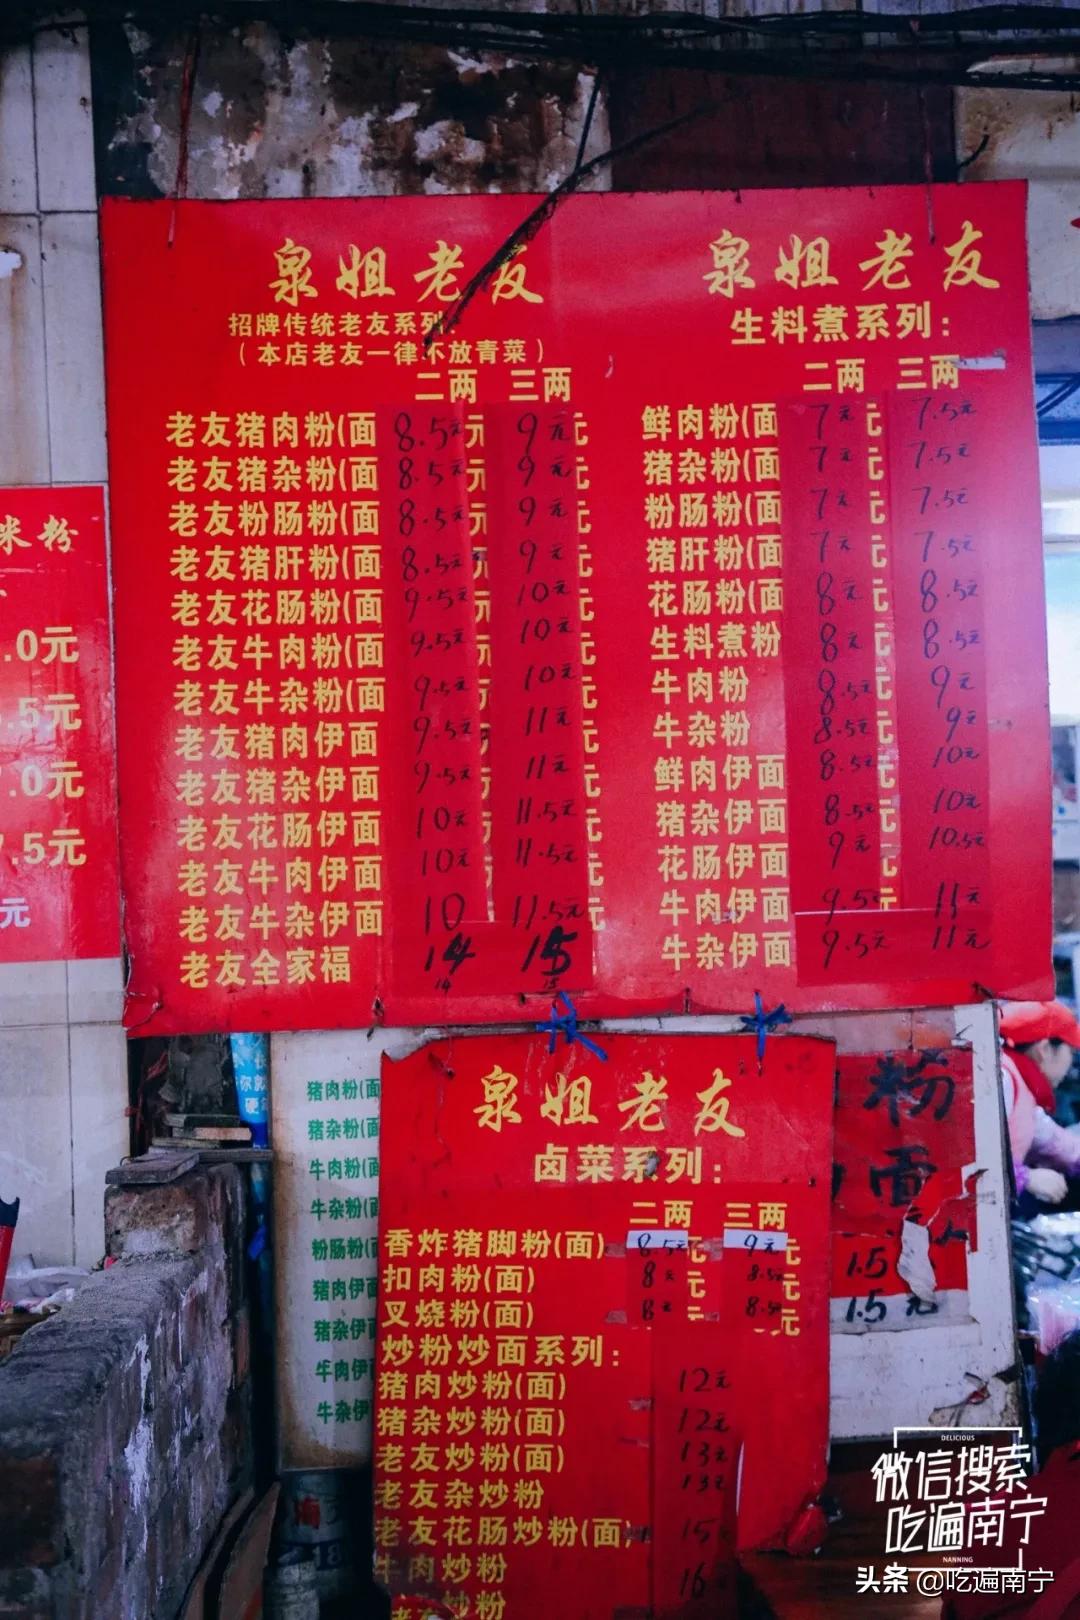 泉姐老友
招牌传统老友系列:
(本店老友一律不放青菜)
二两 三两
老友猪肉粉(面 8.5元 9元
老友猪杂粉(面 8.5元 9元
老友粉肠粉(面 8.5元 9元
老友猪肝粉(面 8.5元 9元
老友花肠粉(面 9.5元 10元
老友牛肉粉(面 9.5元 10元
老友牛杂粉(面 9.5元 10元
老友猪肉伊面 9.5元 11元
老友猪杂伊面 9.5元 11元
老友花肠伊面 10元 11.5元
老友牛肉伊面 10元 11.5元
老友牛杂伊面 10 11.5元
老友全家福 14 15
14 15
泉姐老友
生料煮系列:
二两 三两
鲜肉粉(面 7元 7.5元
猪杂粉(面 7元 7.5元
粉肠粉(面 7元 7.5元
猪肝粉(面 7元 7.5元
花肠粉(面 8元 8.5元
生料煮粉 8元 8.5元
牛肉粉 8.5元 9元
牛杂粉 8.5元 9元
鲜肉伊面 8.5元 10元
猪杂伊面 8.5元 10元
花肠伊面 9元 10.5元
牛肉伊面 9.5元 11元
牛杂伊面 9.5元 11元
米粉
.0元
.5元
7.0元
7.5元
元
猪肉粉(面
猪杂粉(面
牛肉粉(面
牛杂粉(面
粉肠粉(面
猪肉伊面
猪杂伊面
牛肉伊面
牛杂伊
泉姐老友
卤菜系列:
二两 三两
香炸猪脚粉(面) 8.5元 9元
扣肉粉(面) 8元 8.5元
叉烧粉(面) 8元 8.5元
炒粉炒面系列:
猪肉炒粉(面) 12元
猪杂炒粉(面) 12元
老友炒粉(面) 13元
老友杂炒粉 13元
老友花肠炒粉(面) 15元
牛肉炒粉 16元
炒粉
粉
面
1.5
1.5元
DELICIOUS
微信搜索
吃遍南宁
NANNING
头条 @吃遍南宁